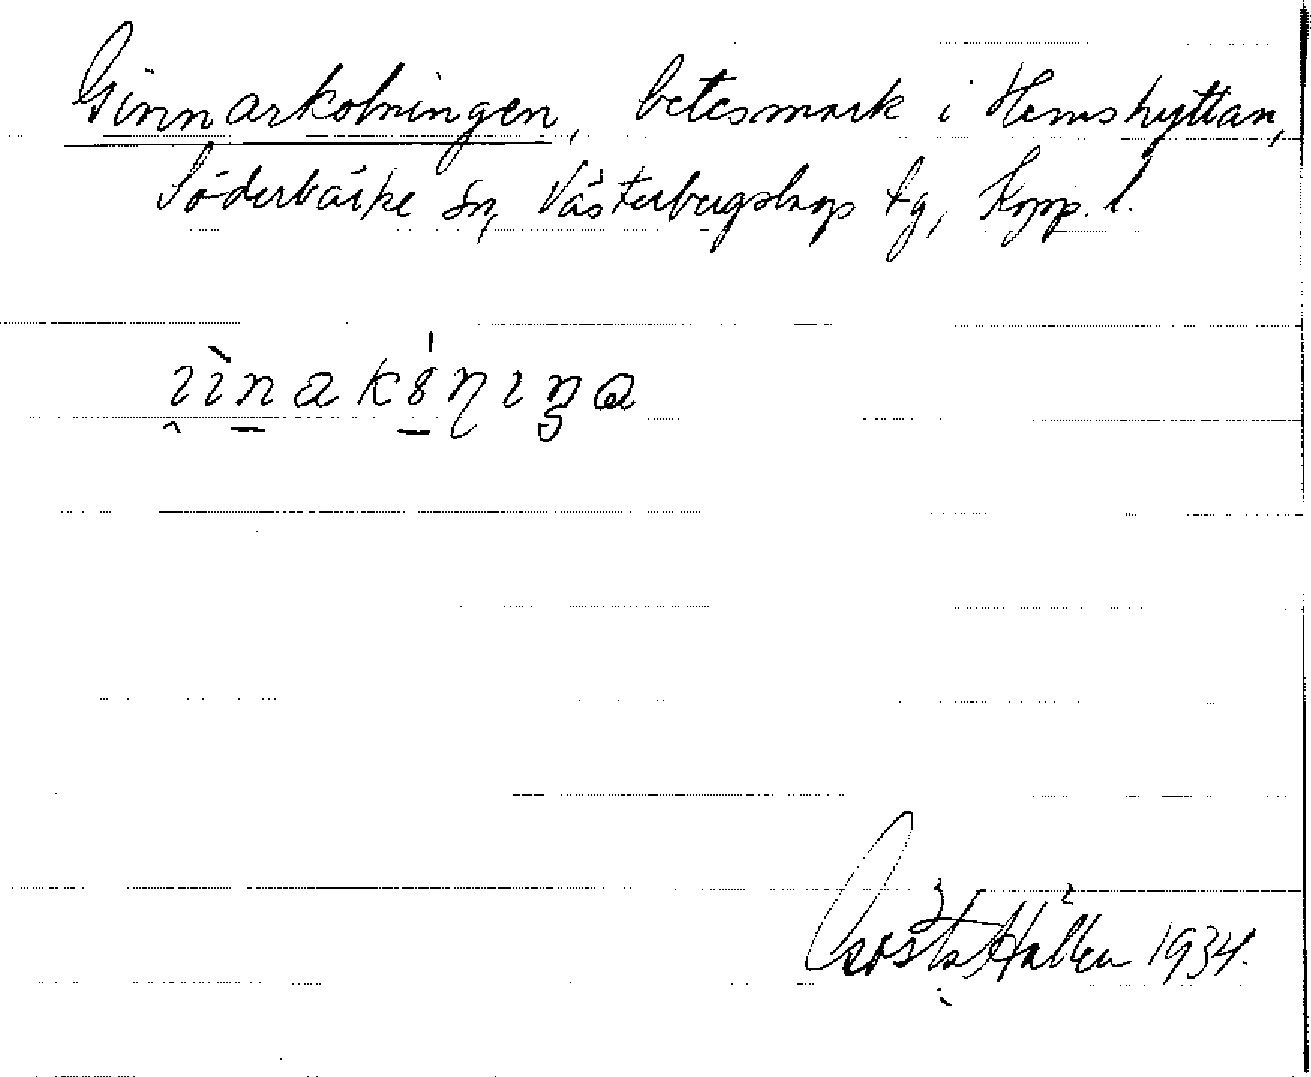 Ginnarkolningen, betesmark i Hemshyttan,
Söderbärke sn, Västerbergslags tg, Kopp. l.
Gösta Hallen 1934.